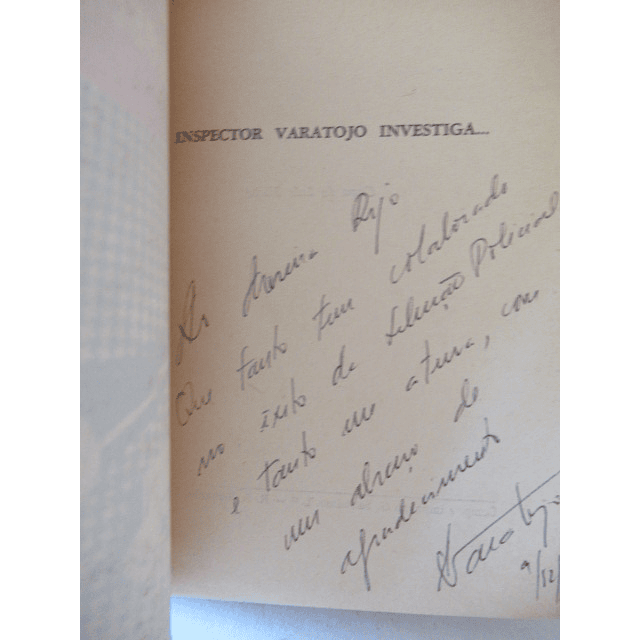 INSPECTOR VARATOJO INVESTIGA...
Rijo
Que tanto tem colaborado
no êxito da Selecção Policial
e tanto me atura, com
um abraço de
agradecimento
Varatojo
9/12/